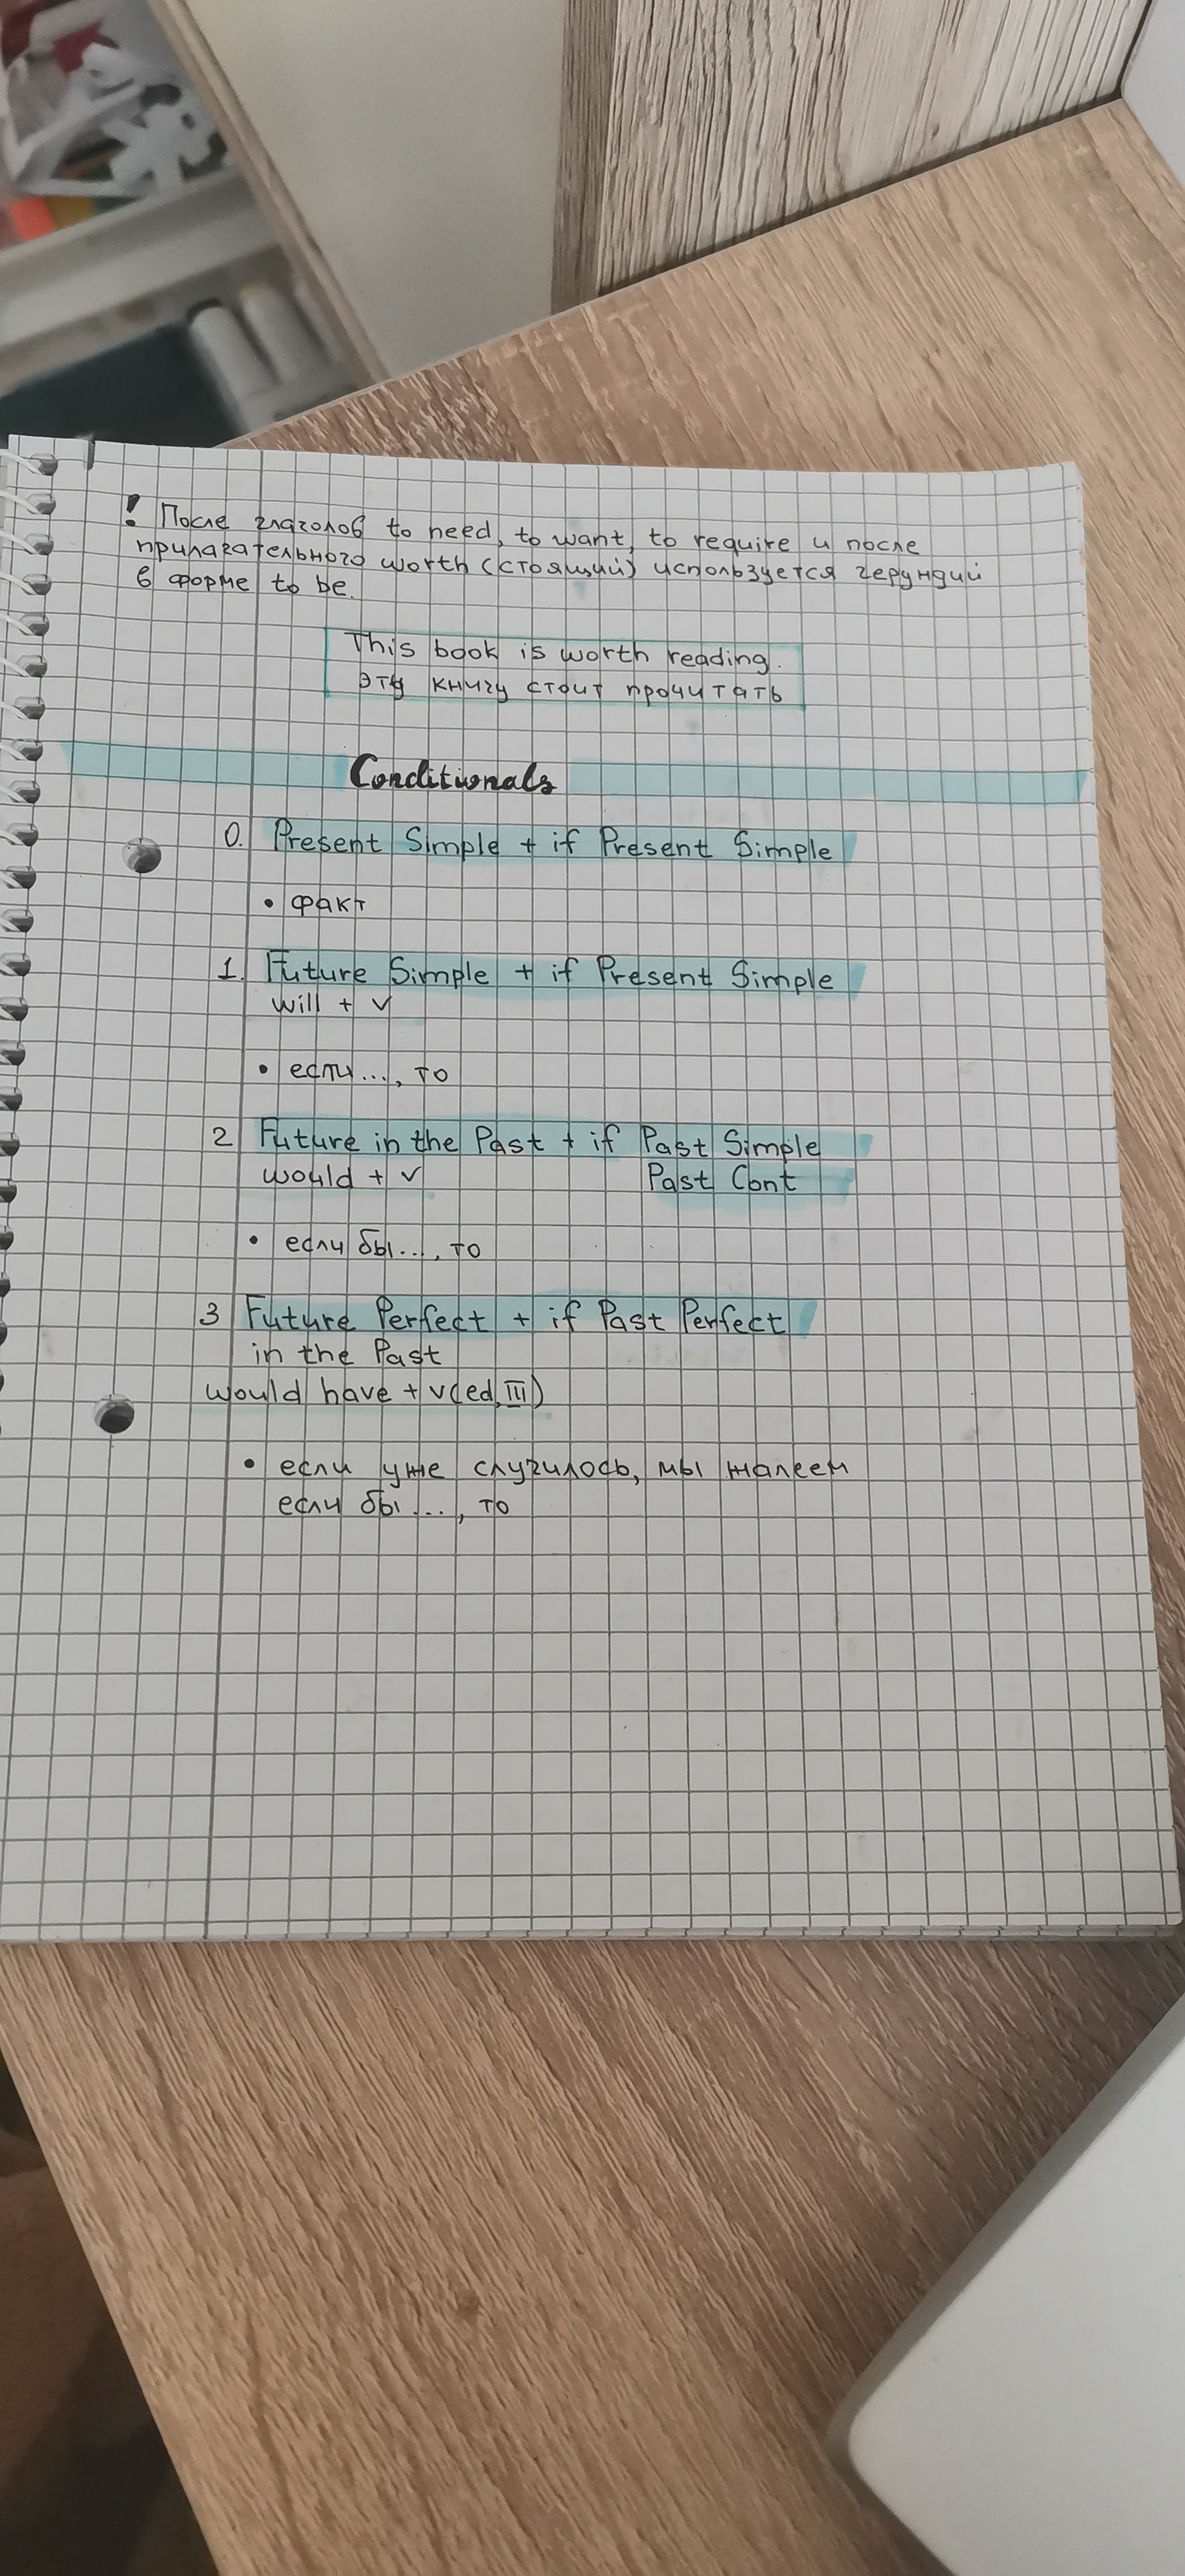 ! После глаголов to need, to want, to require и после
прилагательного worth (стоящий) используется герундий
в форме to be.
This book is worth reading.
Эту книгу стоит прочитать
Conditionals
0. Present Simple + if Present Simple
• факт
1. Future Simple + if Present Simple
will + v
• если..., то
2 Future in the Past + if Past Simple
would + v Past Cont
• если бы..., то
3 Future Perfect + if Past Perfect
in the Past
would have + v(ed, III)
• если уже случилось, мы жалеем
если бы ..., то